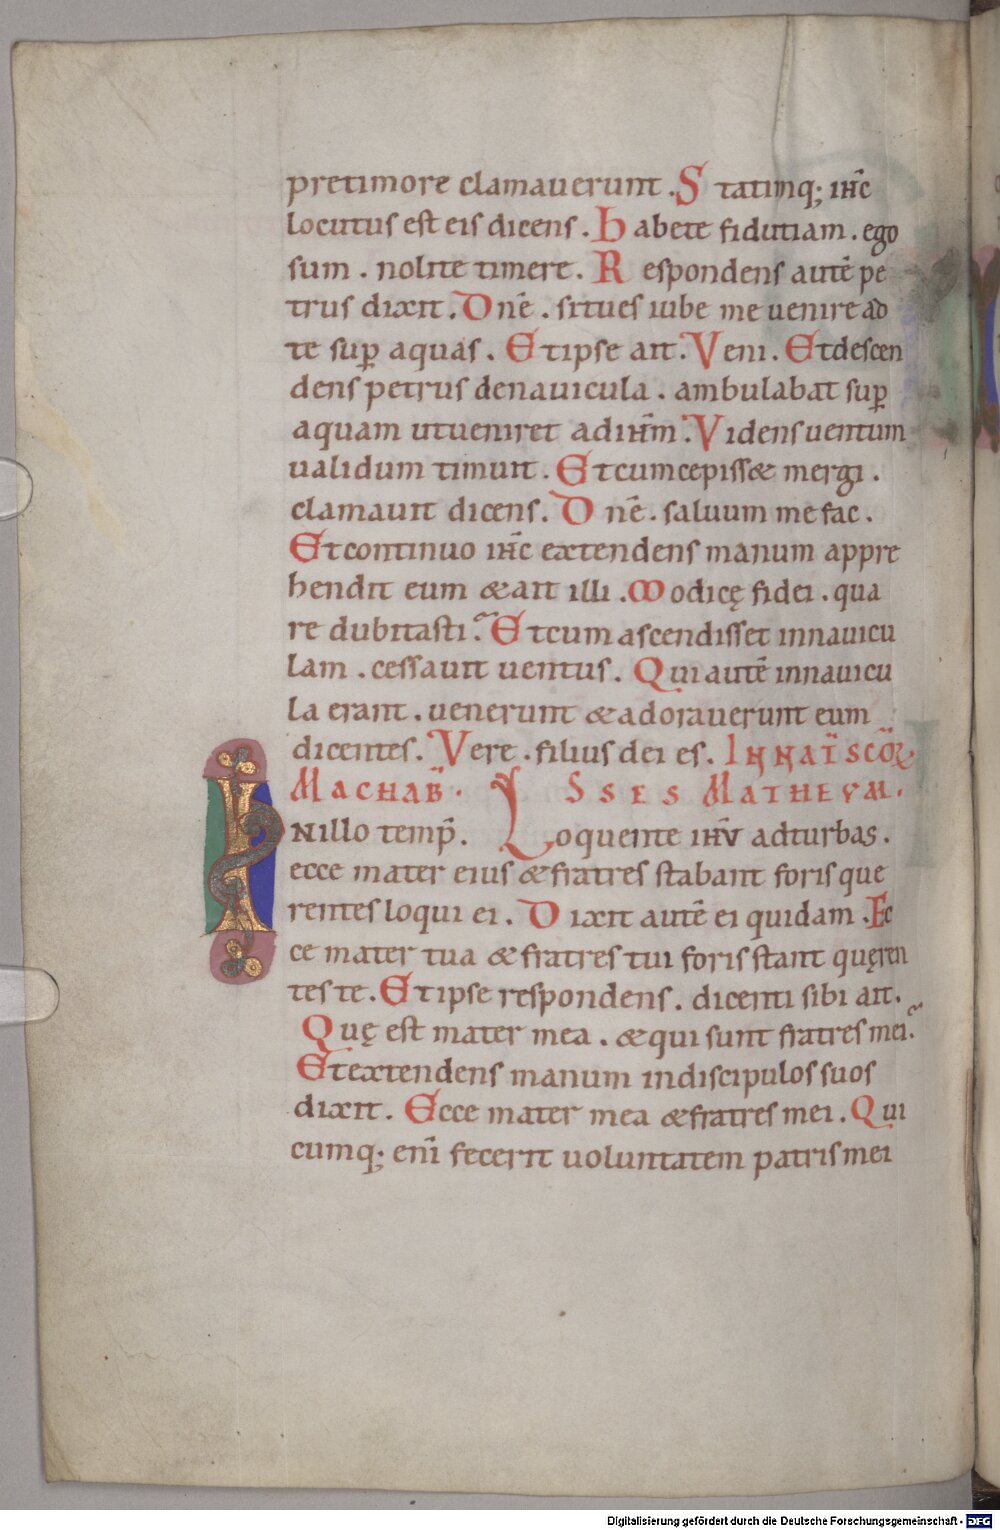 pretimore clamaverunt. Statimq; ih̅c
locutus est eis dicens. Habete fidutiam. ego
sum. nolite timere. Respondens autē pe
trus dixit. Dn̄e. situes iube me uenire ad
te sup̱ aquas. Et ipse ait. Veni. Et descen
dens petrus denavicula. ambulabat sup̱
aquam utueniret adih̅m. Videns uentum
ualidum timuit. Et cumcepiss& mergi.
clamauit dicens. Dn̄e. saluum me fac.
Et continuo ih̅c extendens manum appre
hendit eum & ait illi. Modicę fidei. qua
re dubitasti? Et cum ascendisset innauicu
lam. cessauit uentus. Qui autē innauicu
la erant. uenerunt & adorauerunt eum
dicentes. Vere. filius dei es. IN NAT̄ SCŌꝜ
MACHAB̄. SSES MATHEVM.
INILLO temp̄. Loquente ih̅v adturbas.
ecce mater eius & fratres stabant foris que
rentes loqui ei. Dixit autē ei quidam. Ec
ce mater tua & fratres tui foris stant quęren
tes te. Et ipse respondens. dicenti sibi ait.
Quę est mater mea. & qui sunt fratres mei?
Et extendens manum indiscipulos suos
dixit. Ecce mater mea & fratres mei. Qui
cumq; eni̅ fecerit uoluntatem patris mei
Digitalisierung gefördert durch die Deutsche Forschungsgemeinschaft - DFG